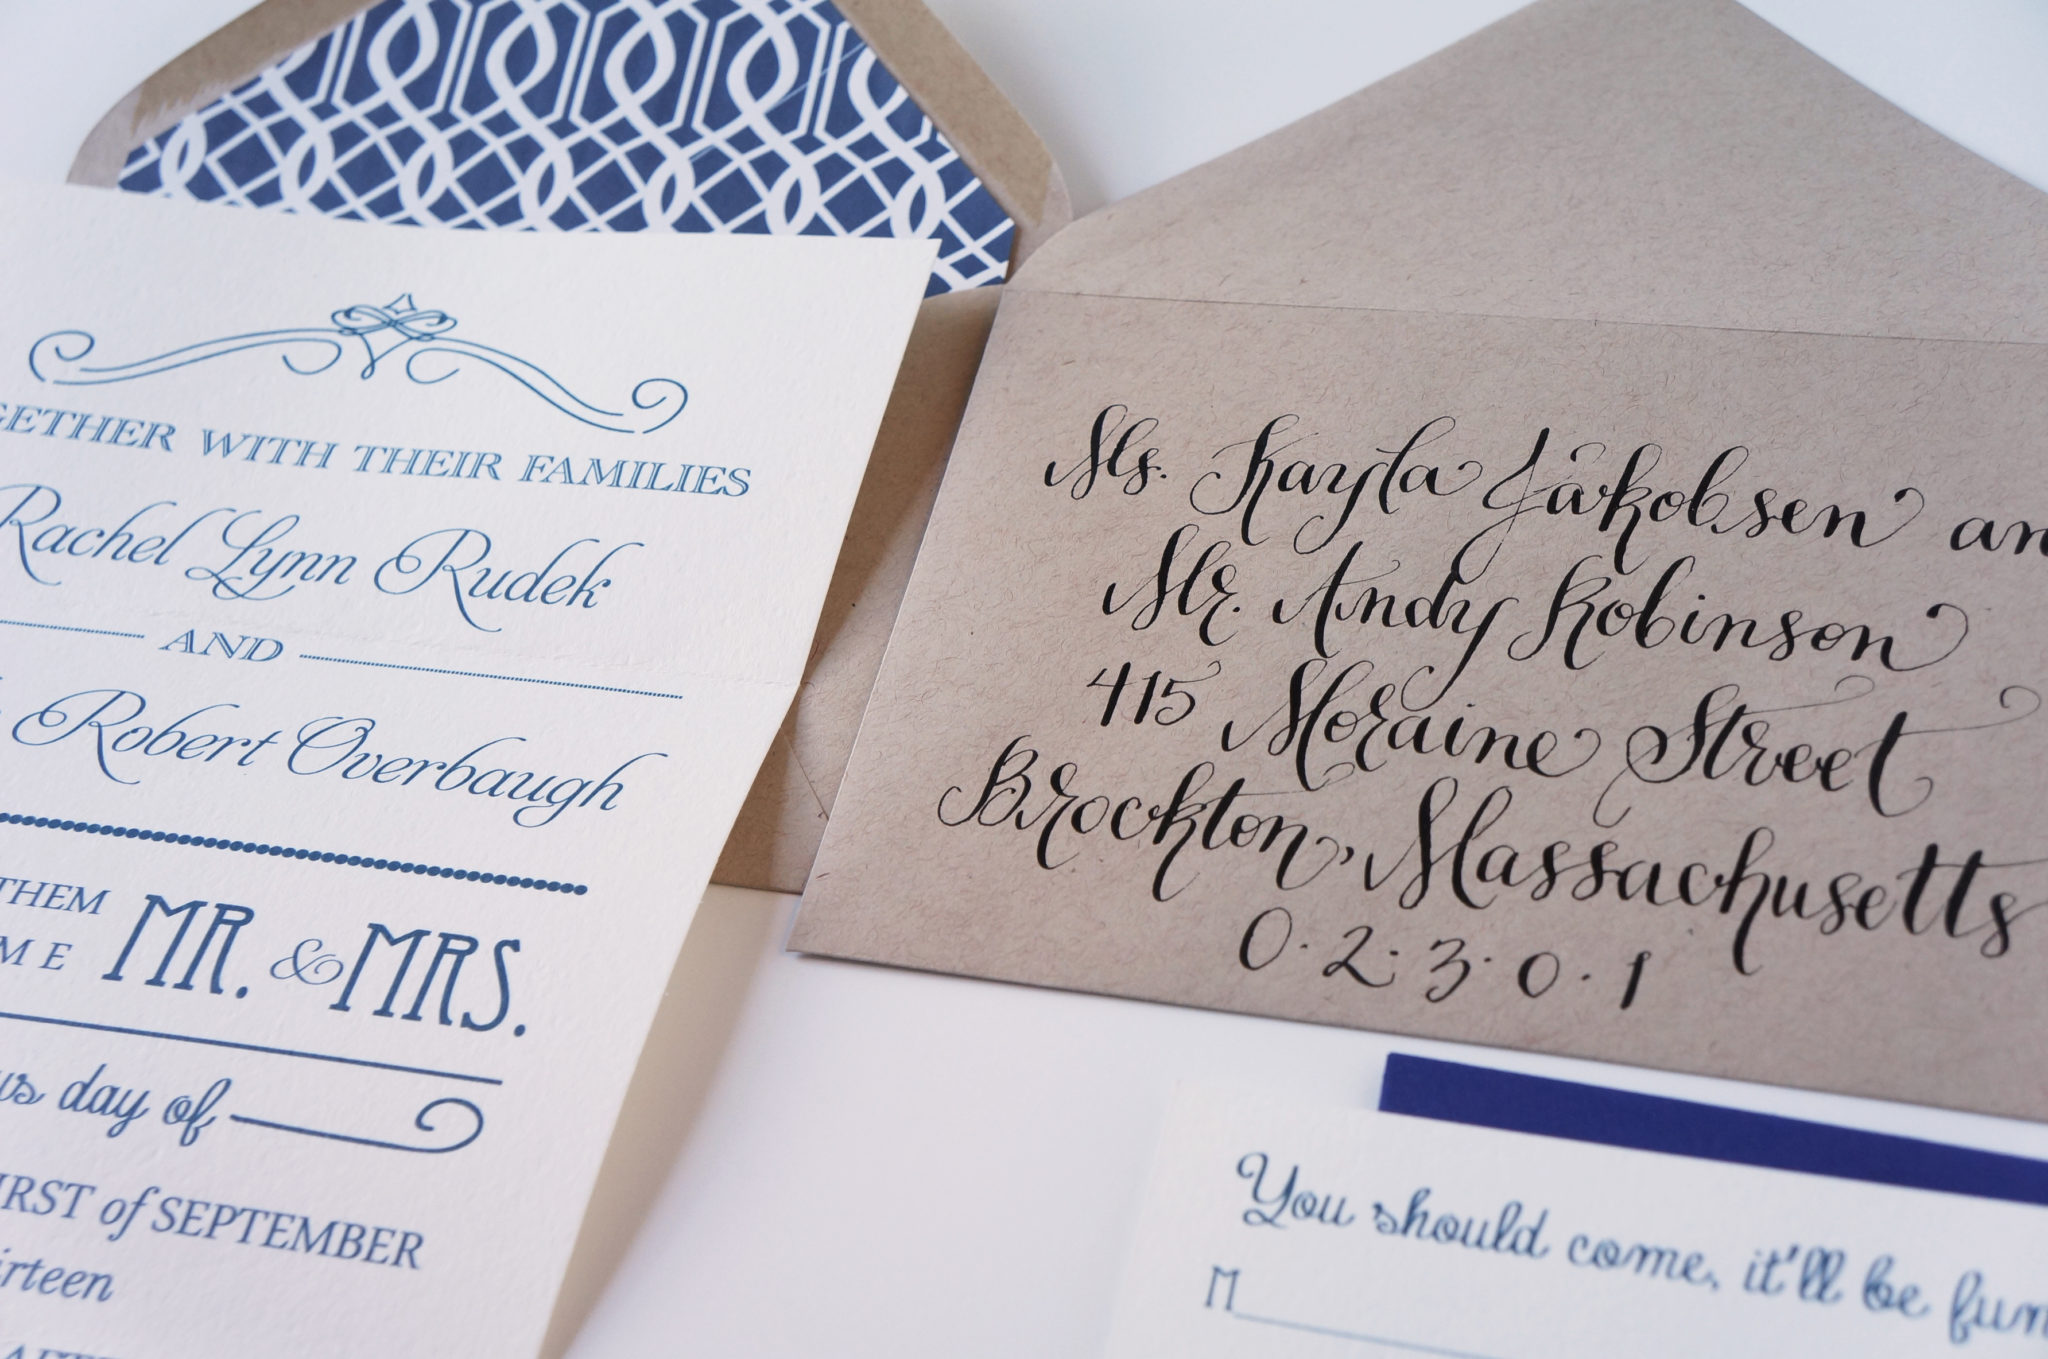 GETHER WITH THEIR FAMILIES
Rachel Lynn Rudek
AND
Robert Overbaugh
THEM
ME
MR. & MRS.
us day of
IRST of SEPTEMBER
irteen
Ms. Kayla Jakobsen an
Mr. Andy Robinson
415 Moraine Street
Brockton, Massachusetts
0·2·3·0·1
You should come, it'll be fun
M